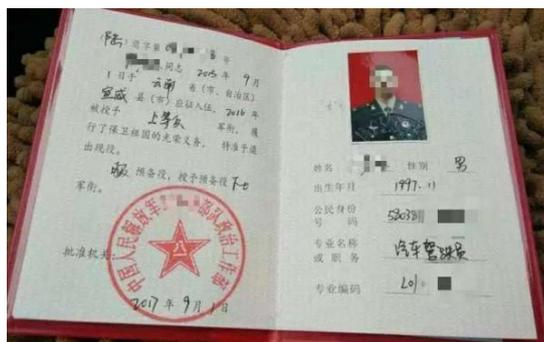 退字第
号
同志 2015 年 9 月
1 日于 云南 省(市、自治区)
宣威 县(市)应征入伍, 2016 年
被授予 上等兵 军衔, 履
行了保卫祖国的光荣义务, 特准予退
出现役。
服 预备役, 授予预备役 下士
军衔。
批准机关:
中国人民解放军 部队政治工作部
2017 年 9 月 1 日
姓名 性别 男
出生年月 1997.11
公民身份
号 码
专业名称
或 职 务 汽车驾驶员
专业编码